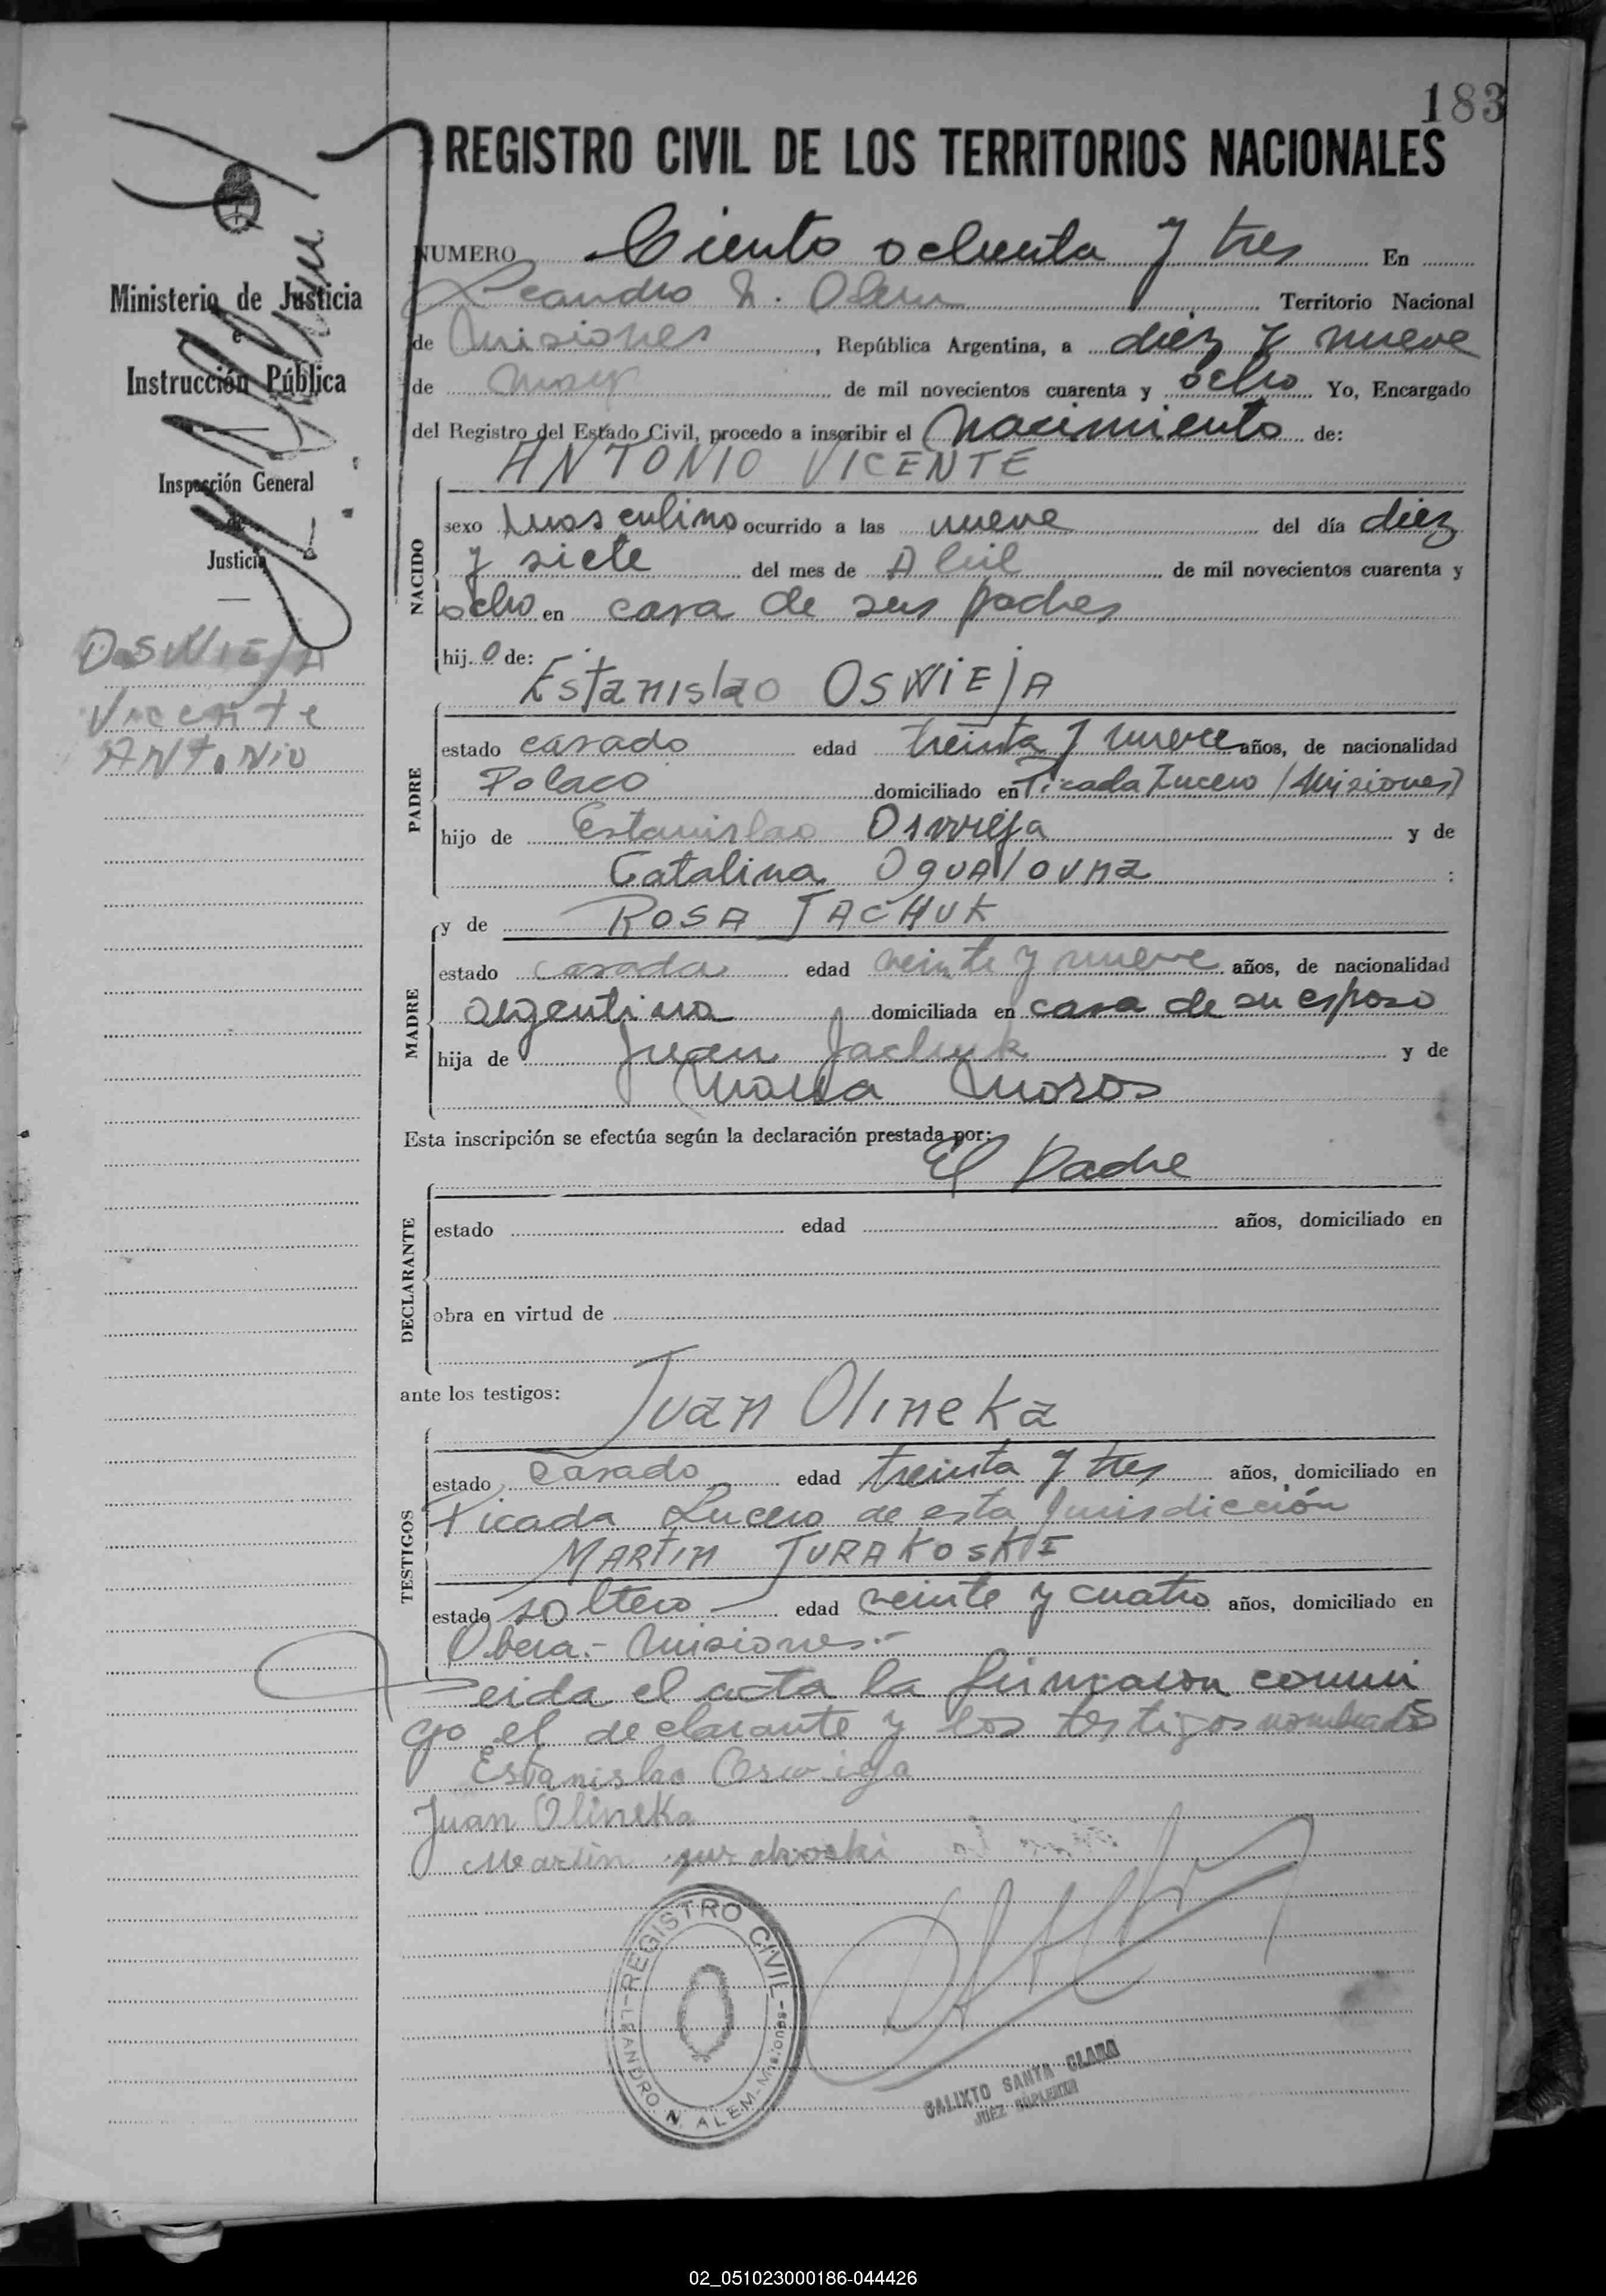 183
REGISTRO CIVIL DE LOS TERRITORIOS NACIONALES
Ministerio de Justicia
e
Instrucción Pública
Inspección General
de
Justicia
OSWIEJA
Vicente
ANTONIO
NUMERO Ciento ochenta y tres En
Leandro N. Alem Territorio Nacional
de Misiones, República Argentina, a diez y nueve
de mayo de mil novecientos cuarenta y ocho Yo, Encargado
del Registro del Estado Civil, procedo a inscribir el Nacimiento de:
ANTONIO VICENTE
NACIDO
sexo masculino ocurrido a las nueve del día diez
y siete del mes de Abril de mil novecientos cuarenta y
ocho en casa de sus padres
hij o de:
Estanislao OSWIEJA
PADRE
estado casado edad treinta y nueve años, de nacionalidad
Polaco domiciliado en Picada Lucero (Misiones)
hijo de Estanislao Oswieja y de
Catalina :
y de ROSA JACHUK
MADRE
estado casada edad veinte y nueve años, de nacionalidad
argentina domiciliada en casa de su esposo
hija de Juan Jachuk y de
Maria Moros
Esta inscripción se efectúa según la declaración prestada por:
El Padre
DECLARANTE
estado edad años, domiciliado en
obra en virtud de
ante los testigos:
Juan Olineka
TESTIGOS
estado casado edad treinta y tres años, domiciliado en
Picada Lucero de esta Jurisdicción
MARTIN JURAKOSKI
estado soltero edad veinte y cuatro años, domiciliado en
Obera.- Misiones.-
Leida el acta la firmaron conmi
go el declarante y los testigos nombrados
Estanislao Oswieja
Juan Olineka
Martin jurakoski
REGISTRO CIVIL
LEANDRO N. ALEM - Misiones
CALIXTO SANTA CLARA
JUEZ SUPLENTE
02_051023000186-044426